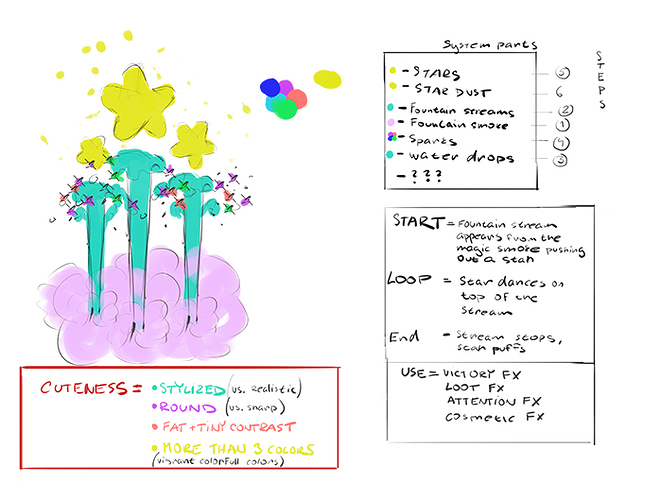 System parts
- STARS
- STAR DUST
- Fountain streams
- Fountain smoke
- Sparks
- water drops
- ? ? ?
5
6
2
1
4
3
STEPS
START = Fountain stream
appears from the
magic smoke pushing
out a star
LOOP = Star dances on
top of the
stream
End - Stream stops,
star puffs
USE = VICTORY FX
LOOT FX
ATTENTION FX
Cosmetic FX
CUTENESS =
• STYLIZED (vs. realistic)
• ROUND (vs. sharp)
• FAT + TINY CONTRAST
• MORE THAN 3 COLORS
(vibrant colorfull colors)